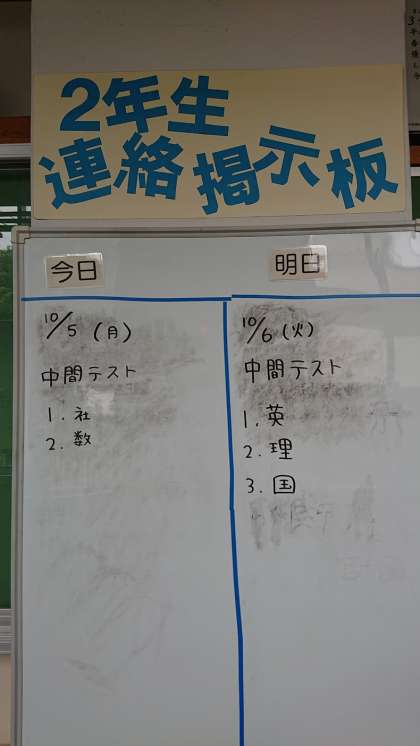 2年生
連絡掲示板
今日
10/5 (月)
中間テスト
1. 社
2. 数
明日
10/6 (火)
中間テスト
1. 英
2. 理
3. 国